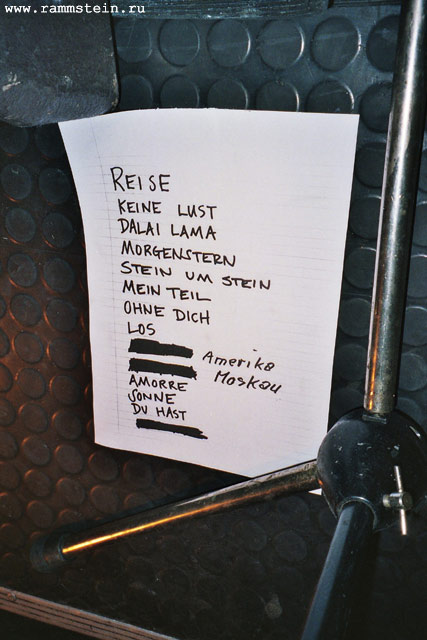 www.rammstein.ru
REISE
KEINE LUST
DALAI LAMA
MORGENSTERN
STEIN UM STEIN
MEIN TEIL
OHNE DICH
LOS
Amerika
Moskau
AMORRE
SONNE
DU HAST